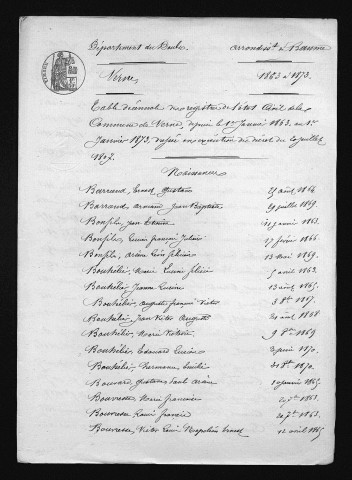 Département du Doubs
arrondist de Baume
Verne
1863 à 1873.
Table décennale des registres de l'état civil de la
Commune de Verne, depuis le 1er Janvier 1863 au 1er
Janvier 1873, dressée en exécution du décret du 20 juillet
1807.
Naissances
Barraud, Ernest Gustave 25 août 1864
Barraud, Armand Jean Baptiste 20 juillet 1869.
Bonfils, Jean Etienne janvier 1863.
Bonfils, Lucien François Julien 17 février 1866
Bonfils, Arsène Léon 13 Mai 1869.
Bouhélier, Marie Louise avril 1863.
Bouhélier, Jeanne Lucine 13 1865.
Bouhélier, Auguste François Victor 3 1867.
Bouhélier, Jean Victor Auguste août 1868
Bouhélier, Marie Victoire 9 1869
Bouhélier, Edouard Lucien 1870.
Bouhélier, 1870.
Bouvard, Gustave Paul janvier 1865
Bouveresse, Marie Francine 7bre 1863.
Bouveresse, Louis Francis 20 7bre 1863.
Bouveresse, Victor Louis Napoléon Ernest 12 avril 1865